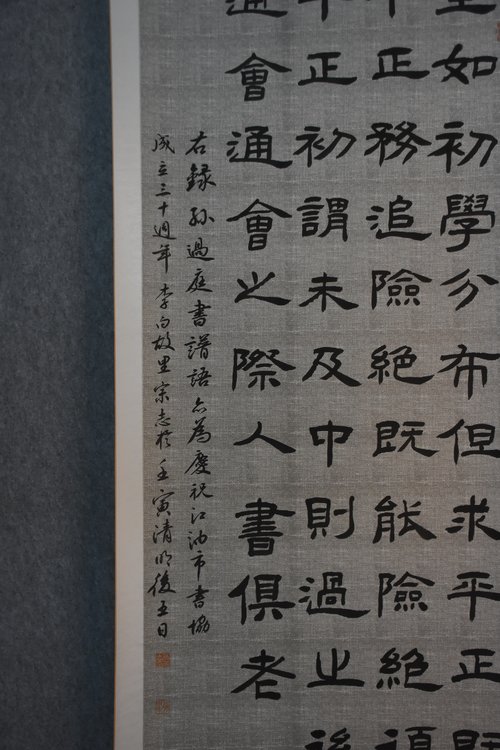 至如初學分布但求平正既
平正務追險絕既能險絕須
平正初謂未及中則過之後
通會通會之際人書俱老
右錄孫過庭書譜語亦為慶祝江油市書協
成立三十週年李白故里宋志於壬寅清明後五日